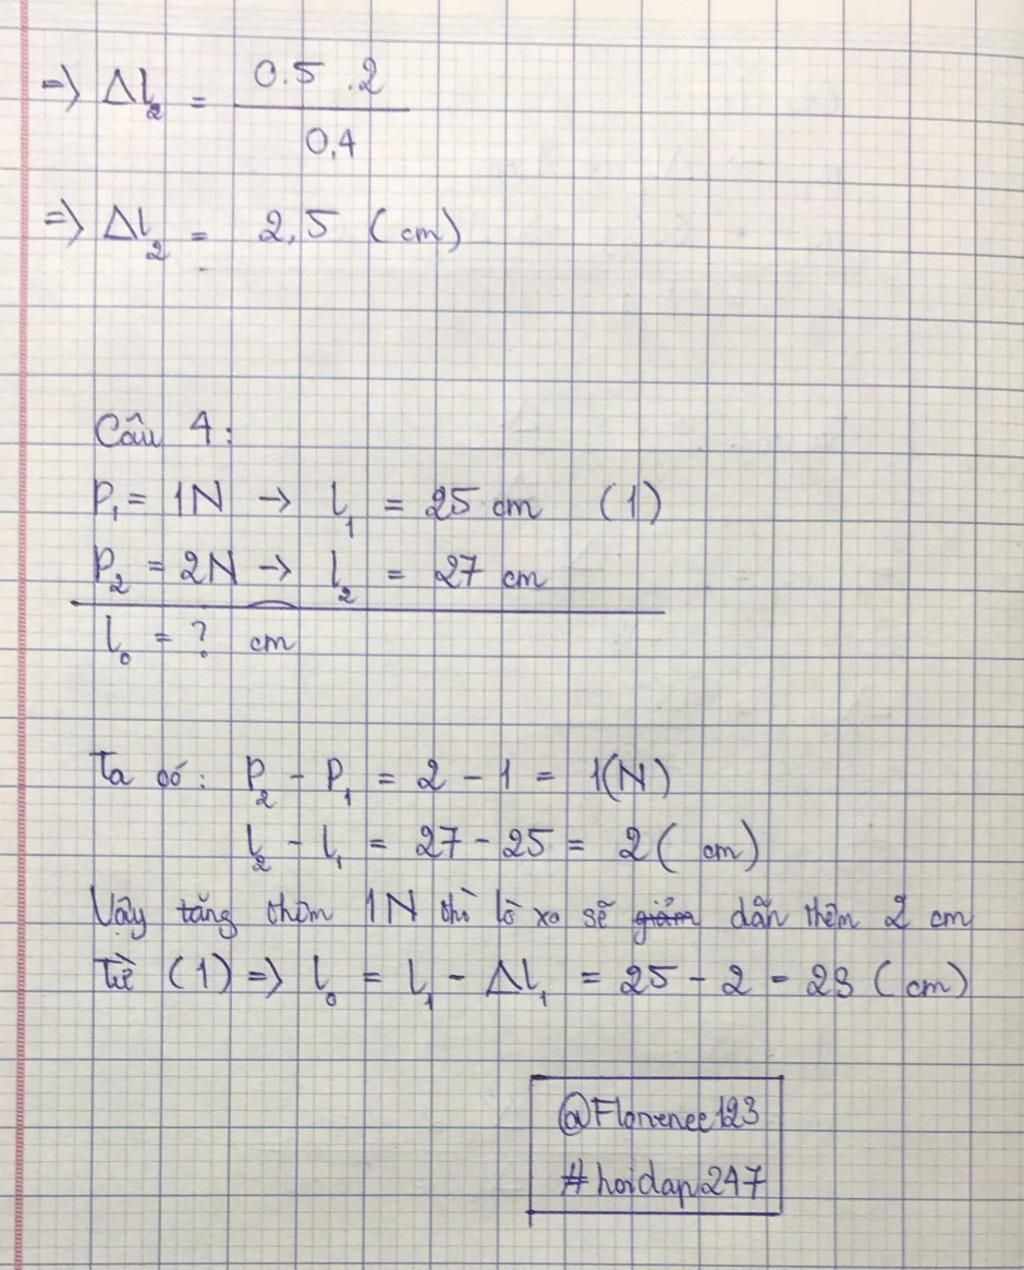 => Δl₂ = 0.5 .2 / 0,4
=> Δl₂ = 2,5 (cm)
Câu 4:
P₁ = 1N → l₁ = 25 cm (1)
P₂ = 2N → l₂ = 27 cm
l₀ = ? cm
Ta có: P₂ - P₁ = 2 - 1 = 1(N)
l₂ - l₁ = 27 - 25 = 2 (cm)
Vậy tăng thêm 1N thì lò xo sẽ giảm dãn thêm 2 cm
Từ (1) => l₀ = l₁ - Δl₁ = 25 - 2 = 23 (cm)
@Florenee123
#hoidap247